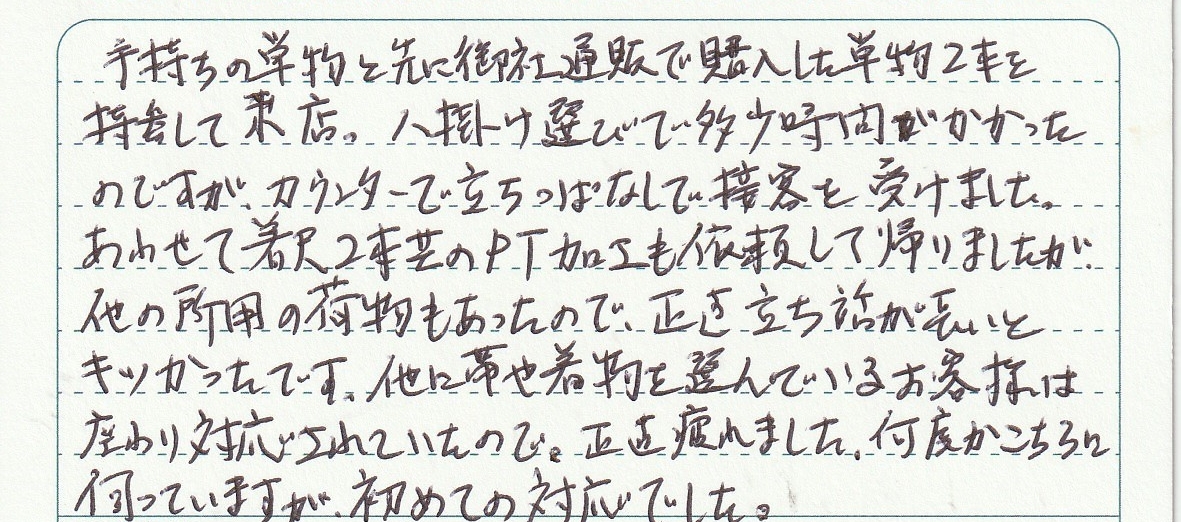 手持ちの単物と先に御社通販で購入した単物2本を
持参して来店。八掛け選びで多少時間がかかった
のですが、カウンターで立ちっぱなしで接客を受けました。
あわせて着尺2本共のPT加工も依頼して帰りましたが、
他の所用の荷物もあったので、正直立ち話が長いと
キツかったです。他に帯や着物を選んでいるお客様は
座わり対応されていたので。正直疲れました。何度かこちらに
伺っていますが、初めての対応でした。